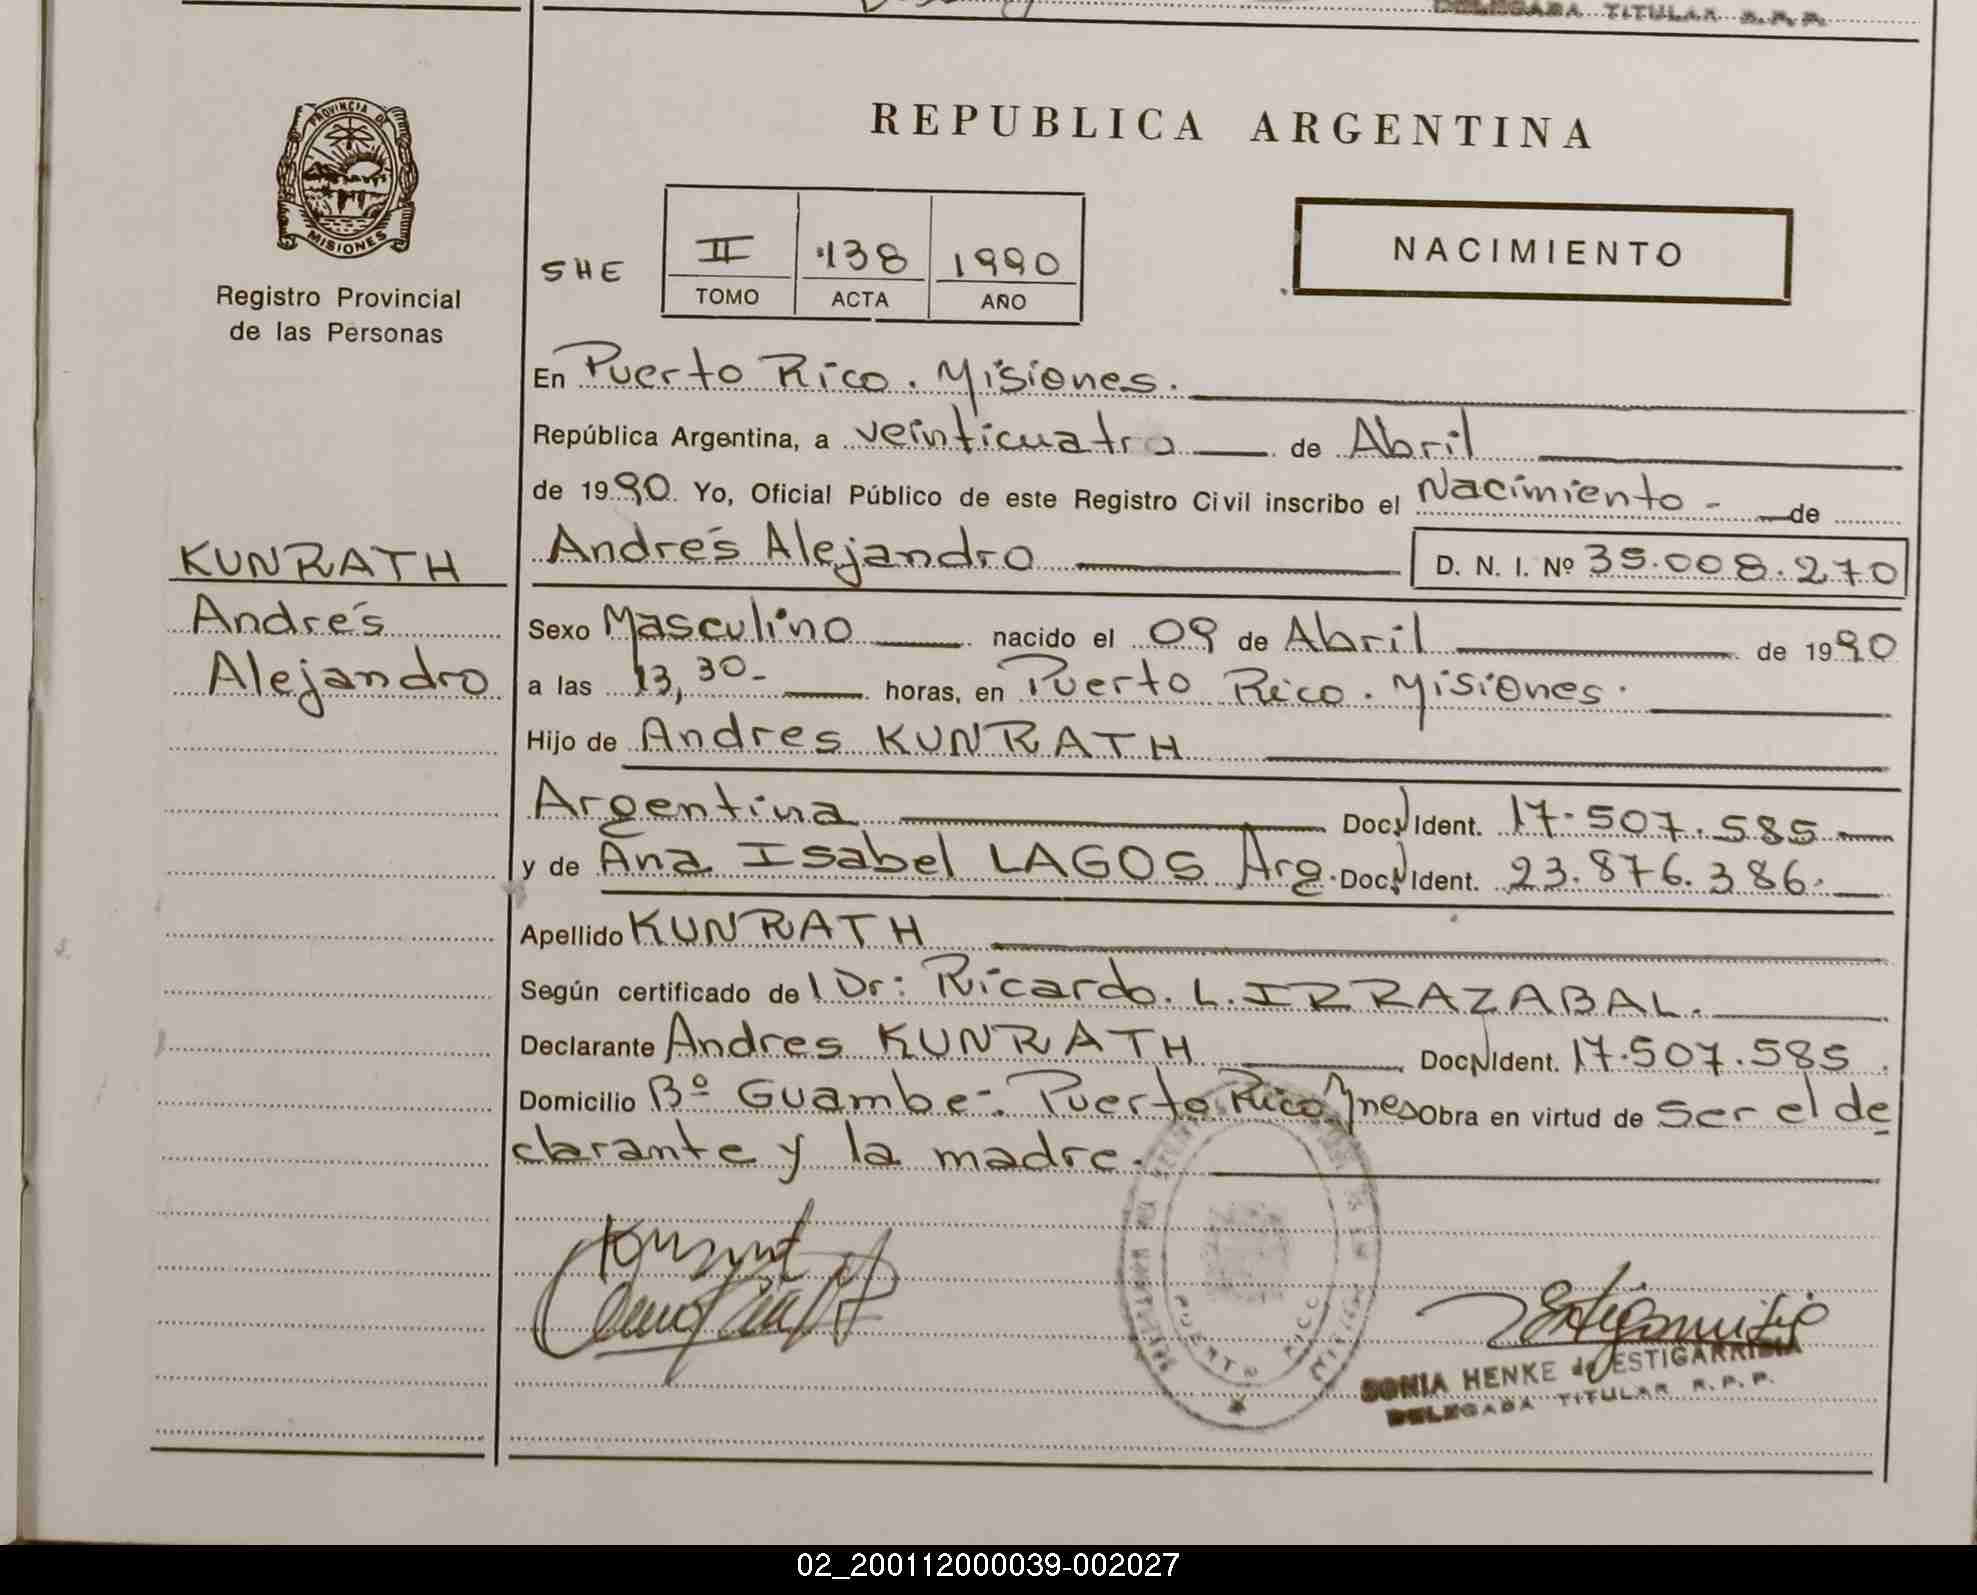 DELEGADA TITULAR R.P.P.
PROVINCIA DE
MISIONES
Registro Provincial
de las Personas
REPUBLICA ARGENTINA
SHE
II 138 1990
TOMO ACTA AÑO
NACIMIENTO
En Puerto Rico. Misiones.
República Argentina, a veinticuatro de Abril
de 1990. Yo, Oficial Público de este Registro Civil inscribo el Nacimiento - de
KUNRATH
Andrés
Alejandro
Andrés Alejandro D. N. I. Nº 35.008.270
Sexo Masculino nacido el 09 de Abril de 1990
a las 13,30- horas, en Puerto Rico. Misiones.
Hijo de Andres KUNRATH
Argentina Doc. Ident. 17.507.585
y de Ana Isabel LAGOS Arg. Doc. Ident. 23.876.386.
Apellido KUNRATH
Según certificado del Dr: Ricardo. L. IRRAZABAL.
Declarante Andres KUNRATH Doc. Ident. 17.507.585.
Domicilio Bº Guambe-. Puerto Rico Mnes Obra en virtud de ser el de
clarante y la madre.
PUERTO RICO
SONIA HENKE de ESTIGARRIBIA
DELEGADA TITULAR R.P.P.
02_200112000039-002027